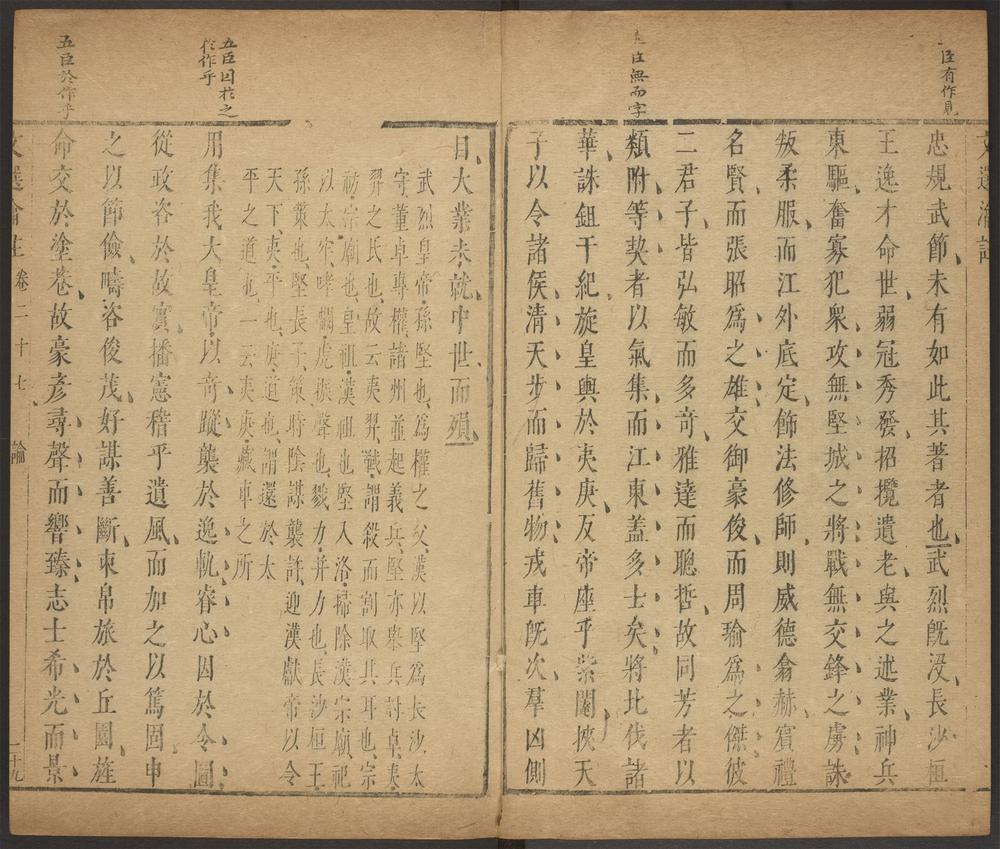 臣有作見
臣無而字
忠規武節未有如此其著者也武烈旣没長沙桓
王逸才命世弱冠秀發招攬遺老與之述業神兵
東驅奮寡犯衆攻無堅城之將戰無交鋒之虜誅
叛柔服而江外底定飾法修師則威德翕赫賓禮
名賢而張昭爲之雄交御豪俊而周瑜爲之傑彼
二君子皆弘敏而多竒雅達而聰哲故同芳者以
類附等契者以氣集而江東蓋多士矣將比伐諸
華誅鉏干紀旋皇輿於夷庚反帝座乎紫闥挾天
子以令諸侯清天步而歸舊物戎車旣次羣凶側
五臣因於之
於作乎
五臣於作乎
目大業未就中世而殞
武烈皇帝孫堅也爲權之父漢以堅爲長沙太
守董卓專權諸州並起義兵堅亦舉兵討卓夷
羿之民也故云夷羿戰謂殺而割取其耳也宗
祊宗廟也皇祖漢祖也堅入洛掃除漢宗廟祀
以太牢哮闞虎振聲也戮力并力也長沙桓王
孫策也堅長子策時陰謀襲許迎漢獻帝以令
天下夷平也庚道也謂還於太
平之道也一云夷庚藏車之所
用集我大皇帝以竒蹤襲於逸軌睿心因於令圖
從政咨於故實播憲稽乎遺風而加之以篤固申
之以節儉疇咨俊茂好謀善斷束帛旅於丘園旌
命交於塗巷故豪彦尋聲而響臻志士希光而景
卷二十七
論
二十九